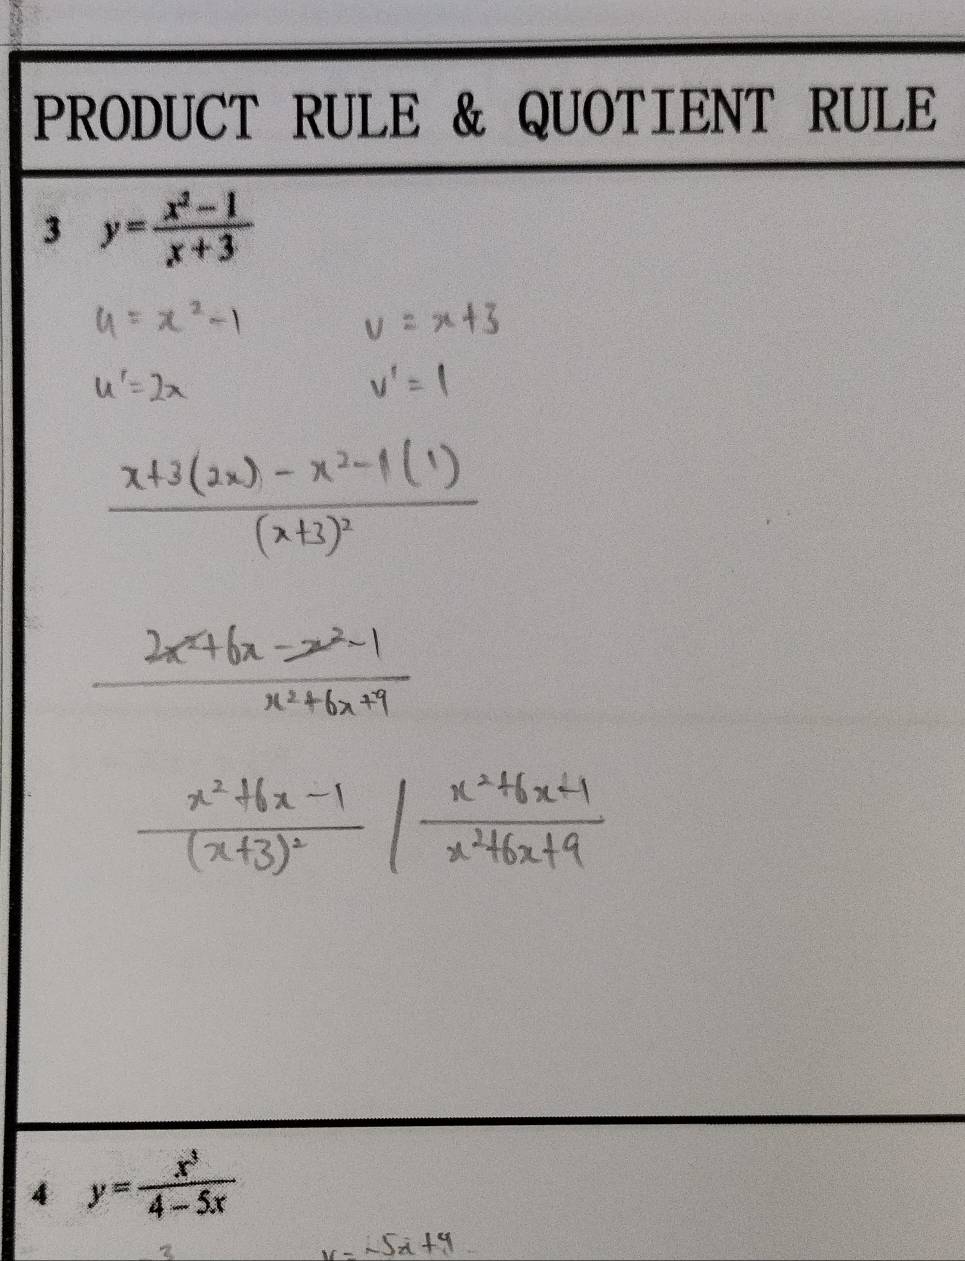 PRODUCT RULE & QUOTIENT RULE
3 y = (x² - 1)/(x + 3)
u = x² - 1 v = x + 3
u' = 2x v' = 1
x+3(2x) - x² - 1(1)
(x+3)²
2x² + 6x - x² - 1
x² + 6x + 9
x² + 6x - 1 | x² + 6x + 1
(x+3)² x² + 6x + 9
4 y = x³/(4 - 5x)
-5x + 4